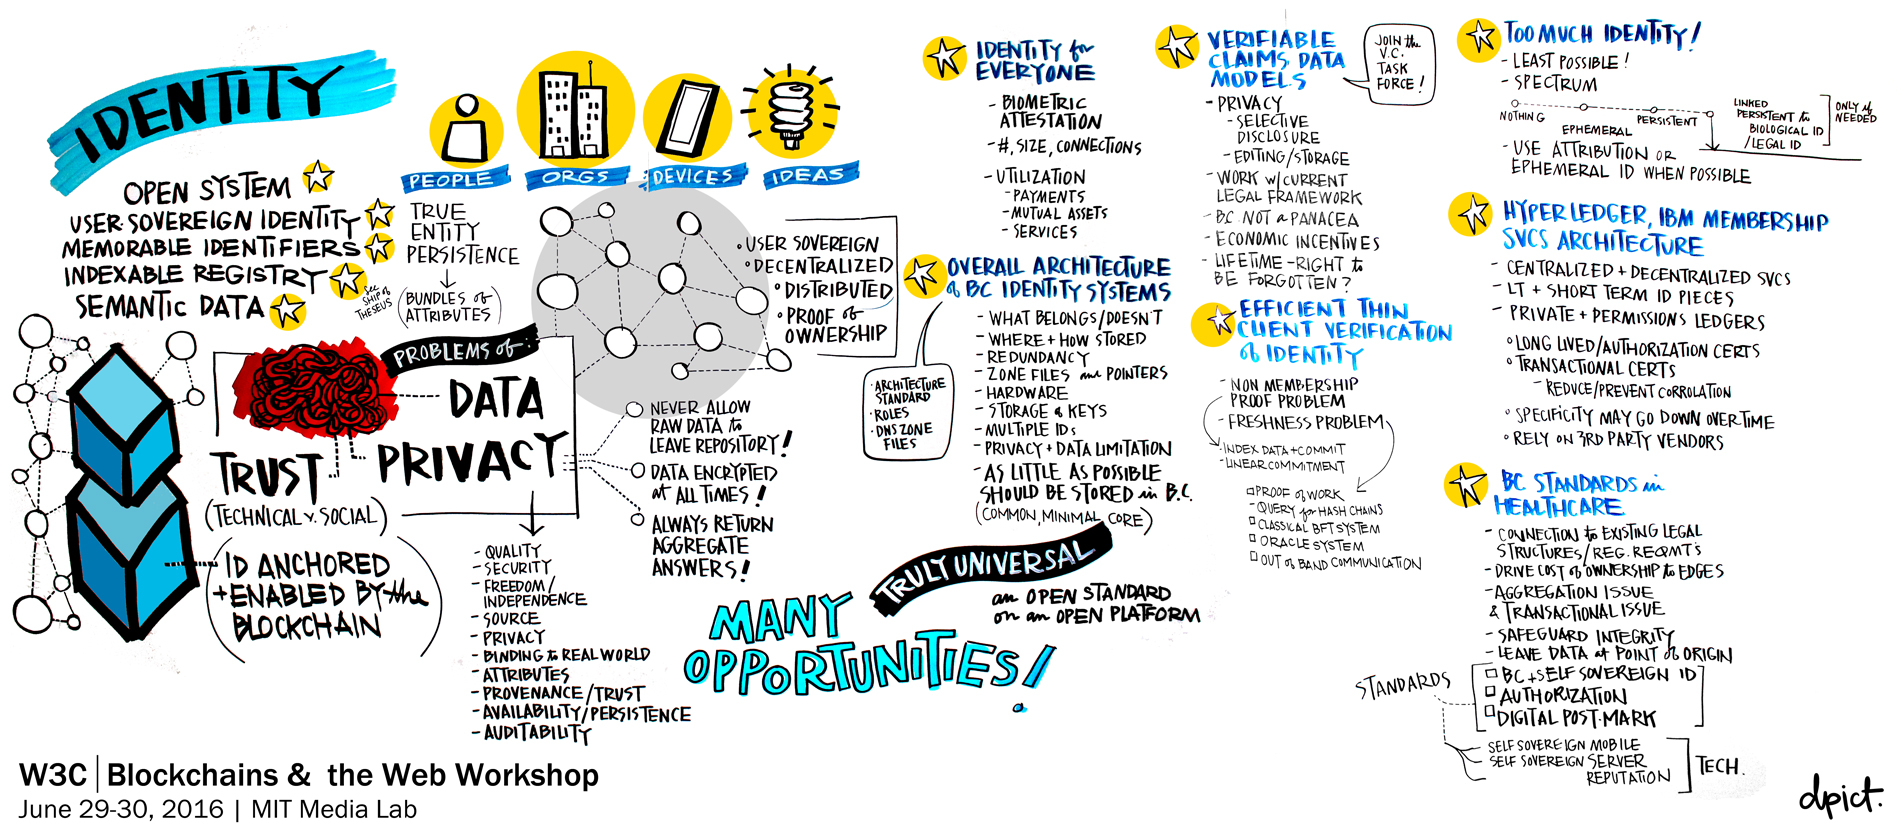 IDENTITY
OPEN SYSTEM
USER-SOVEREIGN IDENTITY
MEMORABLE IDENTIFIERS
INDEXABLE REGISTRY
SEMANTIC DATA
See
SHIP of
THESEUS
PEOPLE
ORGS
DEVICES
IDEAS
TRUE
ENTITY
PERSISTENCE
(BUNDLES of
ATTRIBUTES)
• USER SOVEREIGN
• DECENTRALIZED
• DISTRIBUTED
• PROOF of
OWNERSHIP
PROBLEMS of:
DATA
PRIVACY
TRUST
(TECHNICAL v. SOCIAL)
(ID ANCHORED
+ ENABLED BY the
BLOCKCHAIN)
NEVER ALLOW
RAW DATA to
LEAVE REPOSITORY!
DATA ENCRYPTED
at ALL TIMES!
ALWAYS RETURN
AGGREGATE
ANSWERS!
- QUALITY
- SECURITY
- FREEDOM/
INDEPENDENCE
- SOURCE
- PRIVACY
- BINDING to REAL WORLD
- ATTRIBUTES
- PROVENANCE/TRUST
- AVAILABILITY/PERSISTENCE
- AUDITABILITY
MANY
OPPORTUNITIES!
TRULY UNIVERSAL
an OPEN STANDARD
on an OPEN PLATFORM
IDENTITY for
EVERYONE
- BIOMETRIC
ATTESTATION
- #, SIZE, CONNECTIONS
- UTILIZATION
- PAYMENTS
- MUTUAL ASSETS
- SERVICES
OVERALL ARCHITECTURE
of BC IDENTITY SYSTEMS
- WHAT BELONGS/DOESN'T
- WHERE + HOW STORED
- REDUNDANCY
- ZONE FILES and POINTERS
- HARDWARE
- STORAGE of KEYS
- MULTIPLE IDs
- PRIVACY + DATA LIMITATION
- AS LITTLE AS POSSIBLE
SHOULD BE STORED in B.C.
(COMMON, MINIMAL CORE)
• ARCHITECTURE
STANDARD
• ROLES
• DNS ZONE
FILES
VERIFIABLE
CLAIMS DATA
MODELS
JOIN the
V.C.
TASK
FORCE!
- PRIVACY
- SELECTIVE
DISCLOSURE
- EDITING/STORAGE
- WORK w/CURRENT
LEGAL FRAMEWORK
- B.C. NOT a PANACEA
- ECONOMIC INCENTIVES
- LIFETIME - RIGHT to
BE FORGOTTEN?
EFFICIENT THIN
CLIENT VERIFICATION
of IDENTITY
- NON MEMBERSHIP
PROOF PROBLEM
- FRESHNESS PROBLEM
- INDEX DATA + COMMIT
- LINEAR COMMITMENT
PROOF of WORK
- QUERY for HASH CHAINS
CLASSICAL BFT SYSTEM
ORACLE SYSTEM
OUT of BAND COMMUNICATION
TOO MUCH IDENTITY!
- LEAST POSSIBLE!
- SPECTRUM
NOTHING
EPHEMERAL
PERSISTENT
LINKED
PERSISTENT to
BIOLOGICAL ID
/LEGAL ID
ONLY if
NEEDED
- USE ATTRIBUTION OR
EPHEMERAL ID WHEN POSSIBLE
HYPERLEDGER, IBM MEMBERSHIP
SVCS ARCHITECTURE
- CENTRALIZED + DECENTRALIZED SVCS
- LT + SHORT TERM ID PIECES
- PRIVATE + PERMISSIONS LEDGERS
° LONG LIVED/AUTHORIZATION CERTS
° TRANSACTIONAL CERTS
- REDUCE/PREVENT CORROLATION
° SPECIFICITY MAY GO DOWN OVER TIME
° RELY ON 3RD PARTY VENDORS
BC STANDARDS in
HEALTHCARE
- CONNECTION to EXISTING LEGAL
STRUCTURES/REG. REQMT'S
- DRIVE COST of OWNERSHIP to EDGES
- AGGREGATION ISSUE
& TRANSACTIONAL ISSUE
- SAFEGUARD INTEGRITY
- LEAVE DATA at POINT of ORIGIN
STANDARDS
BC + SELF SOVEREIGN ID
AUTHORIZATION
DIGITAL POST-MARK
SELF SOVEREIGN MOBILE
SELF SOVEREIGN SERVER
REPUTATION
TECH.
W3C | Blockchains & the Web Workshop
June 29-30, 2016 | MIT Media Lab
dpict.